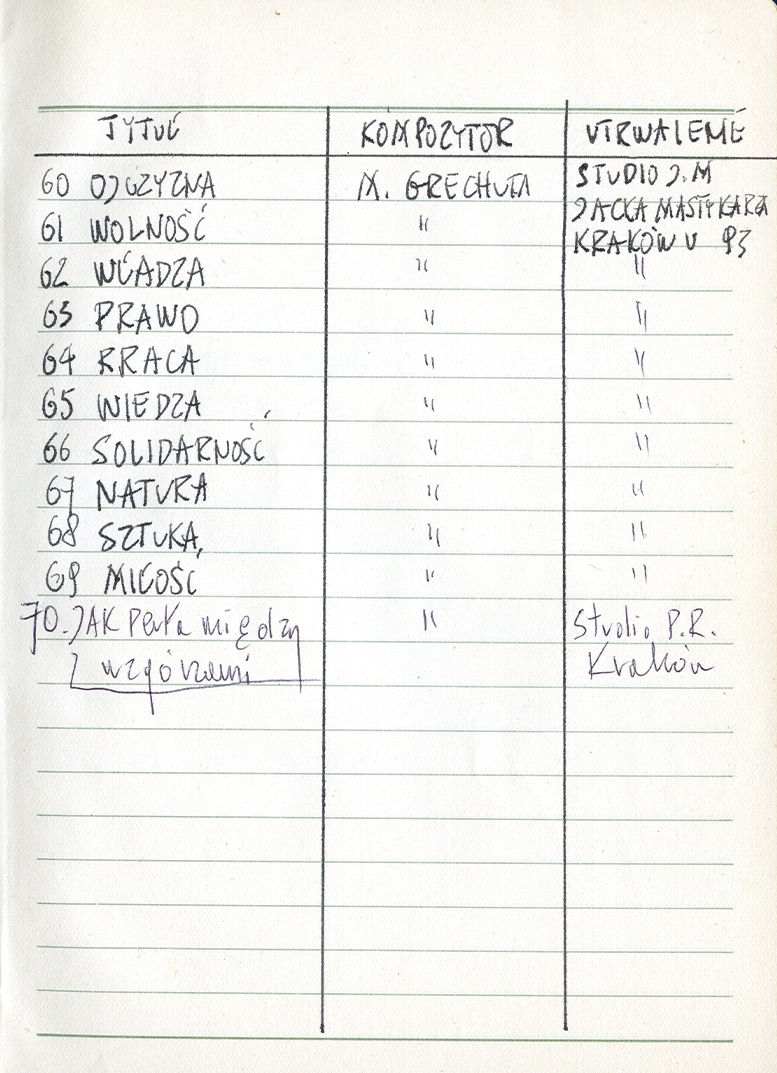 TYTUŁ KOMPOZYTOR UTRWALENIE
60 OJCZYZNA M. GRECHUTA STUDIO J.M
JACKA MASTYKARZA
61 WOLNOŚĆ " KRAKÓW V 93
62 WŁADZA " "
63 PRAWO " "
64 PRACA " "
65 WIEDZA " "
66 SOLIDARNOŚĆ " "
67 NATURA " "
68 SZTUKA, " "
69 MIŁOŚĆ " "
70. JAK Perła między " Studio P.R.
wzgórzami Kraków